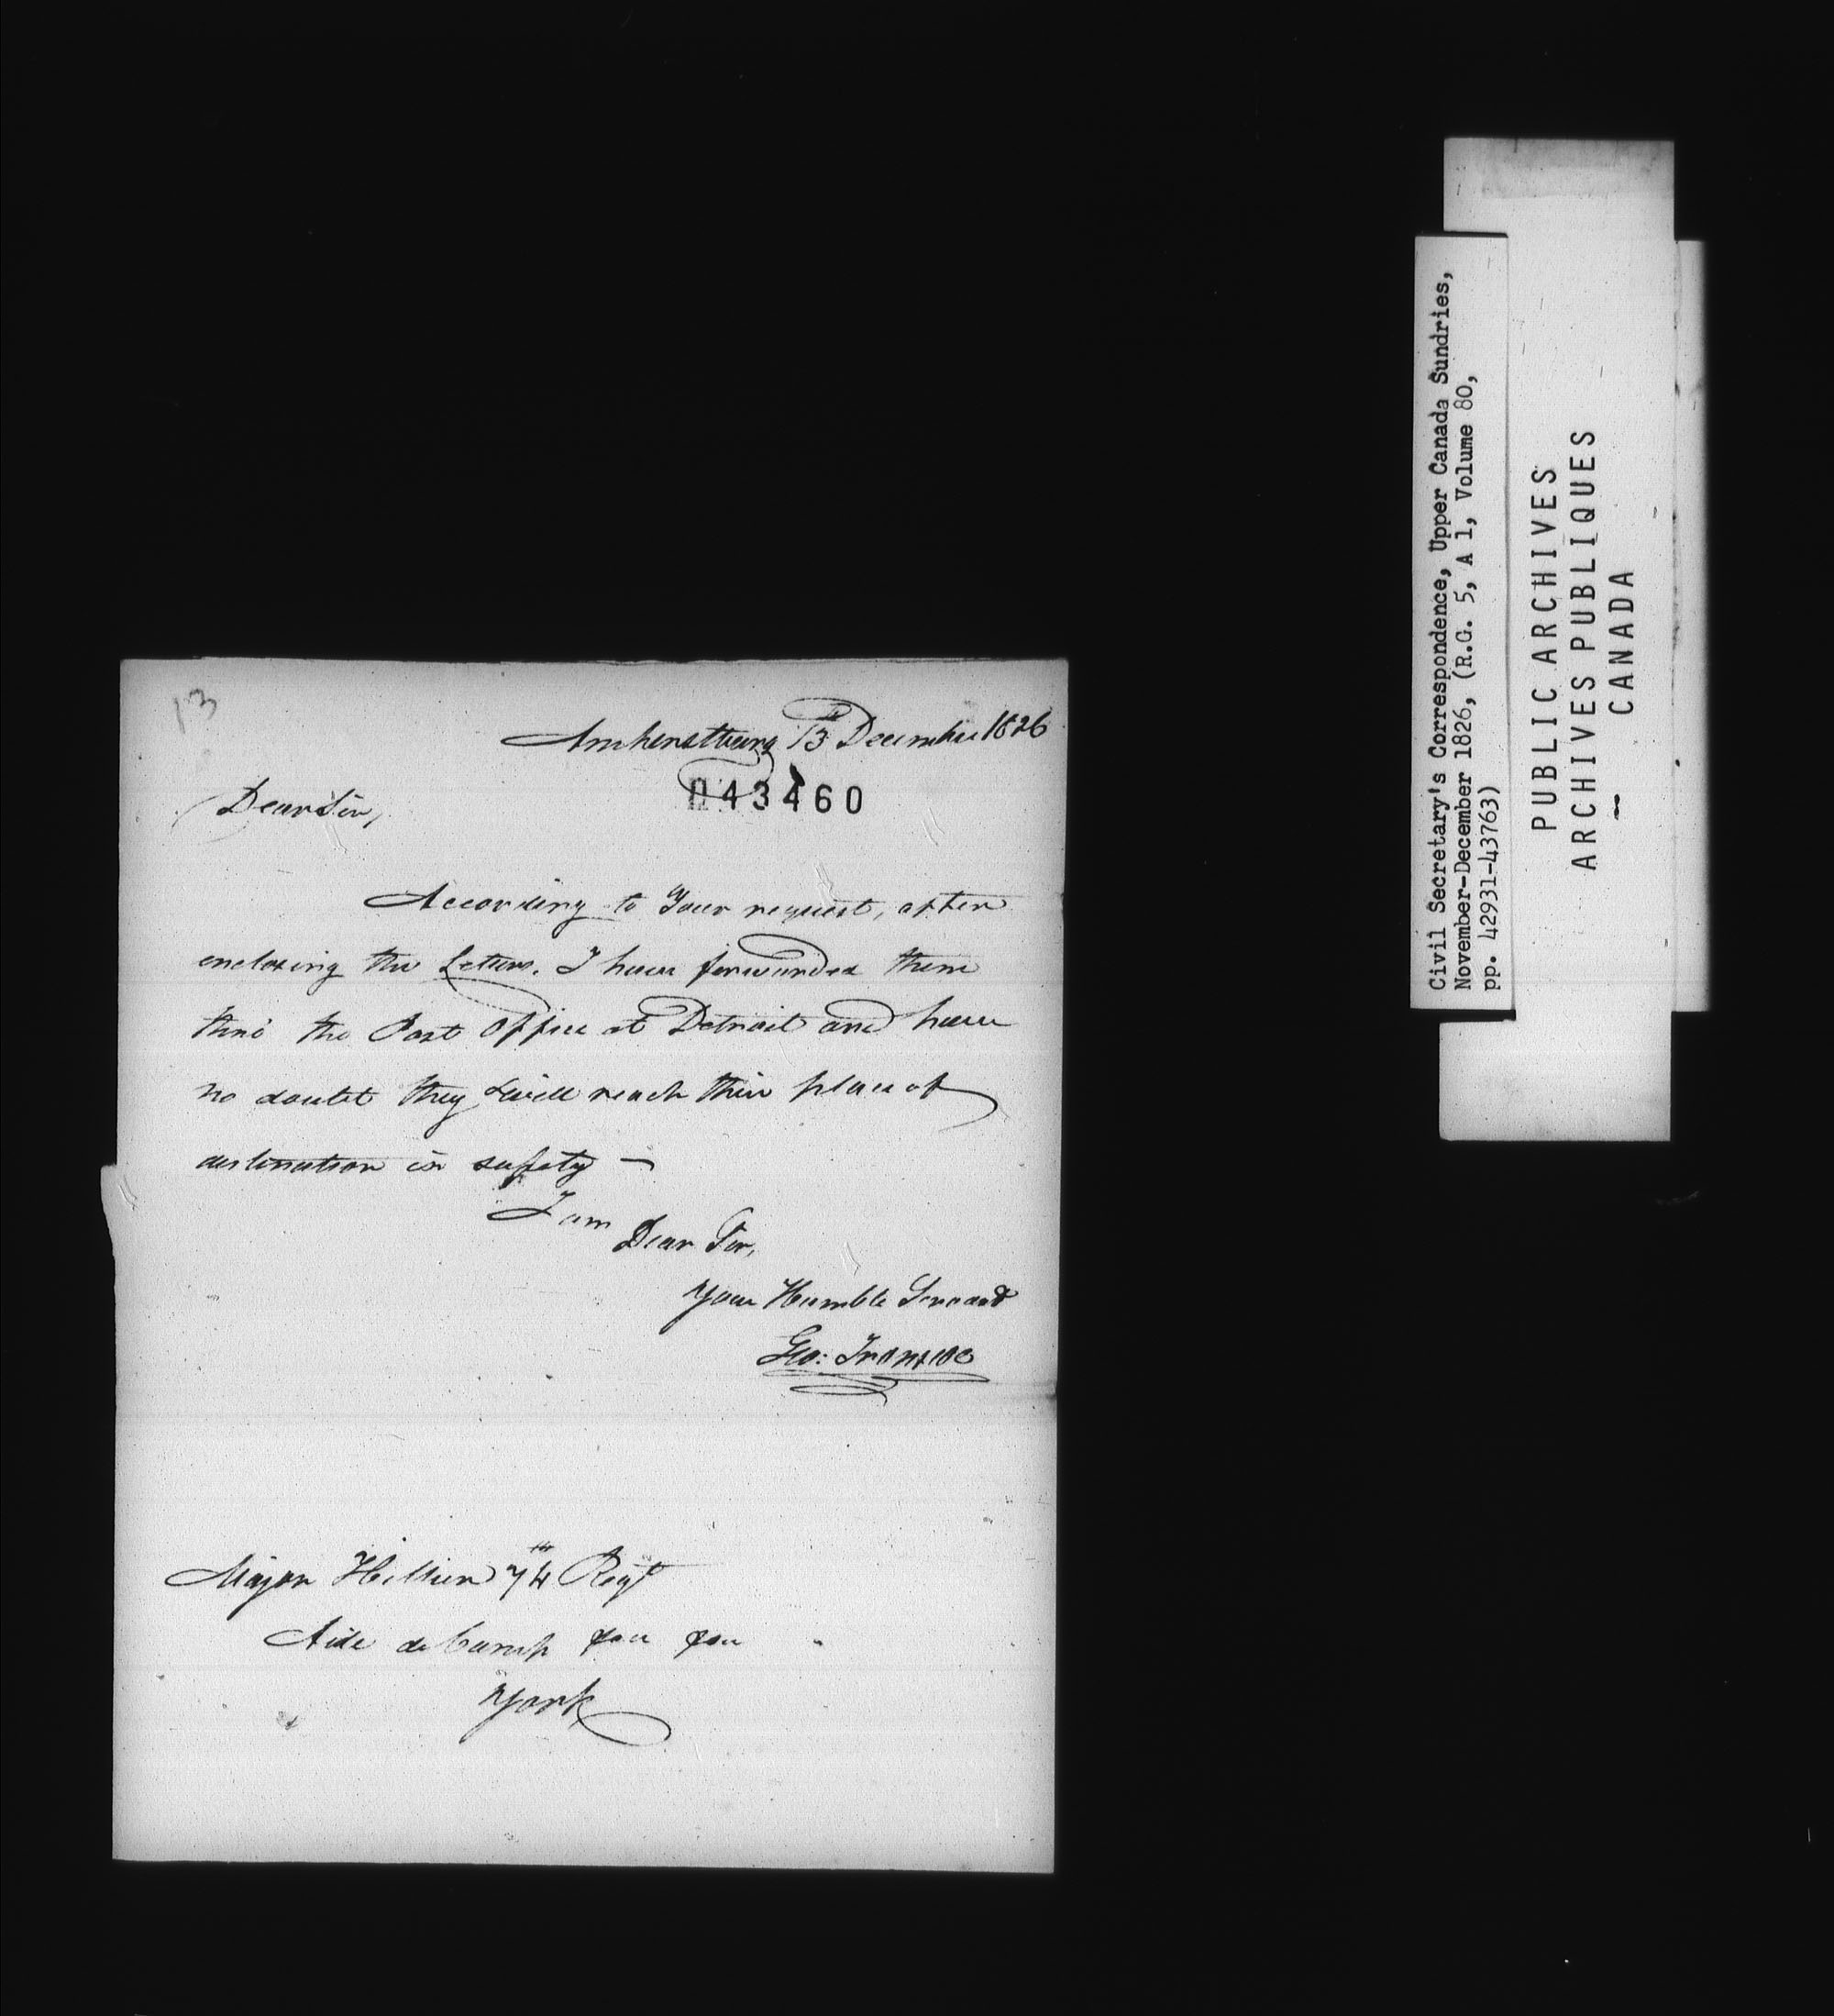 13
Amherstburg 13th December 1826
043460
Dear Sir,
According to Your request, after
enclosing the Letters. I have forwarded them
thro' the Post Office at Detroit and have
no doubt they will reach their place of
destination in safety —
I am
Dear Sir,
Your Humble Servant
Geo: Ironside
Major Hillier 74th Regt
Aide de Camp &ca &ca
York
Civil Secretary's Correspondence, Upper Canada Sundries,
November-December 1826, (R.G. 5, A 1, Volume 80,
pp. 42931-43763)
PUBLIC ARCHIVES
ARCHIVES PUBLIQUES
CANADA